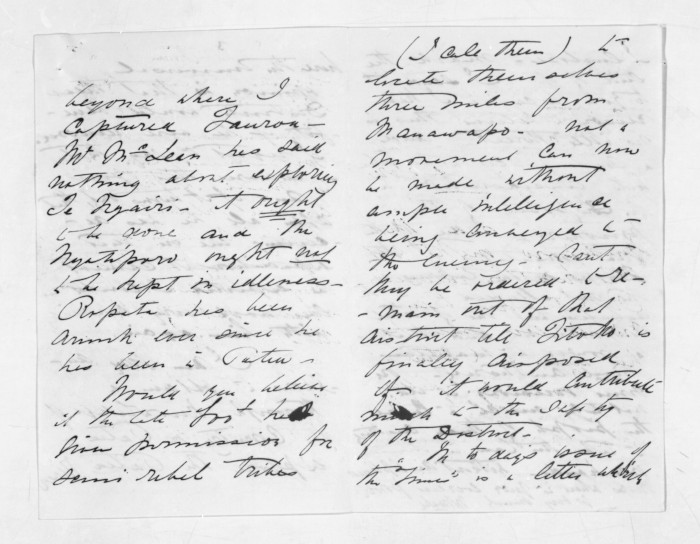 beyond where I
captured Tauroa —
Mr McLean has said
nothing about exploring
Te Ngaire — it ought
to be done and the
Ngatiporo ought not
to be kept in idleness —
Ropata has been
drunk ever since he
has been in Patea —
Would you believe
it the late Govt has
given permission for
semi rebel tribes
(I call them) to
locate themselves
three miles from
Manawapo — not a
movement can now
be made without
ample intelligence
being conveyed to
the enemy — Cant
they be ordered to re-
- main out of that
district till Titoko is
finally disposed
of — it would contribute
much to the safety
of the District —
In to days issue of
the "Times" is a letter which